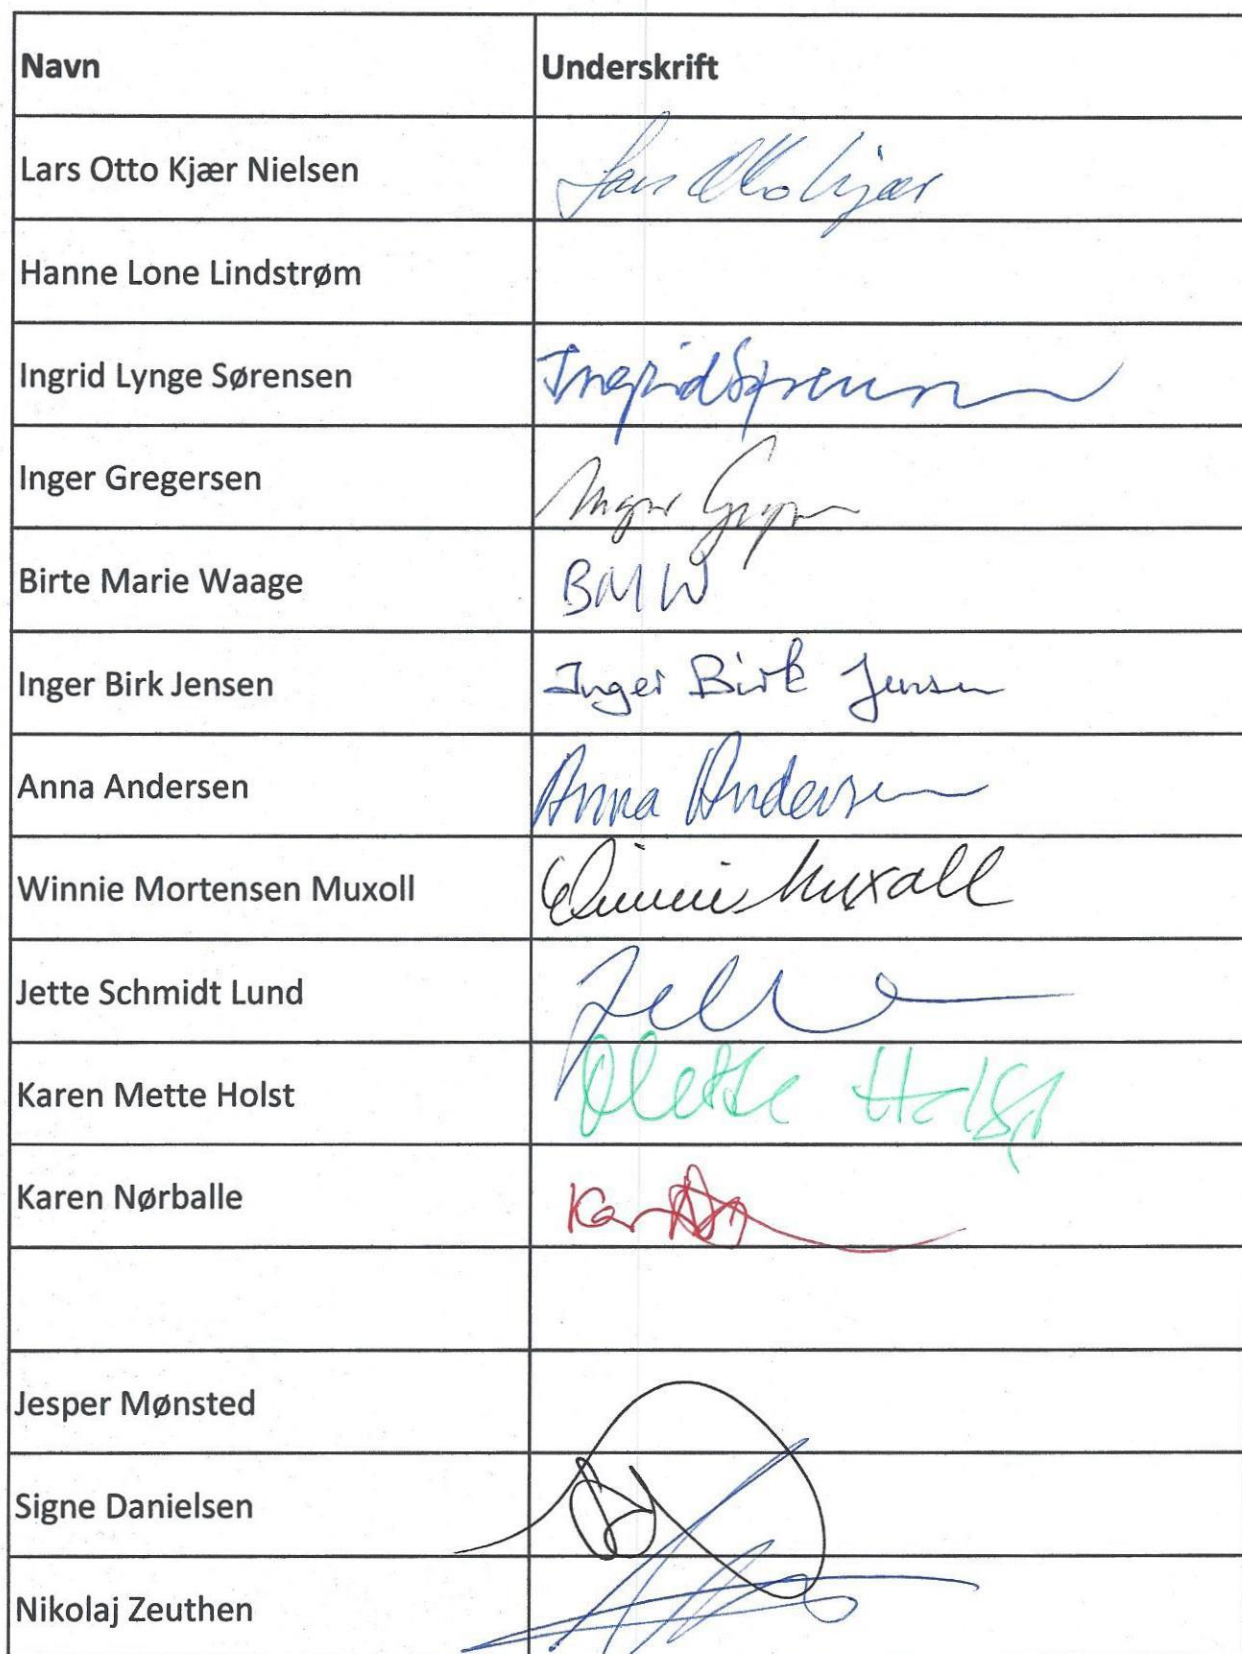 Navn Underskrift
Lars Otto Kjær Nielsen Lars Otto Kjær
Hanne Lone Lindstrøm
Ingrid Lynge Sørensen Ingrid Sørensen
Inger Gregersen Inger
Birte Marie Waage BMW
Inger Birk Jensen Inger Birk Jensen
Anna Andersen Anna Andersen
Winnie Mortensen Muxoll Winnie Muxoll
Jette Schmidt Lund
Karen Mette Holst Mette Holst
Karen Nørballe
Jesper Mønsted
Signe Danielsen
Nikolaj Zeuthen